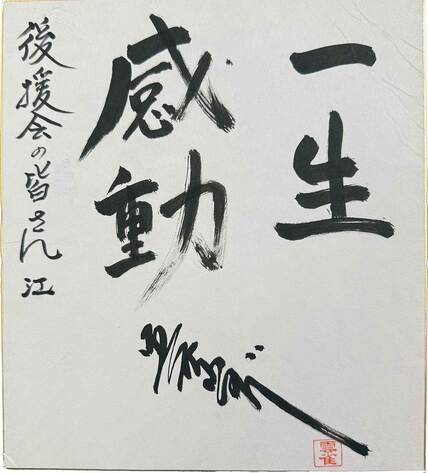 一生
感動
後援会の皆さん江
雲雀